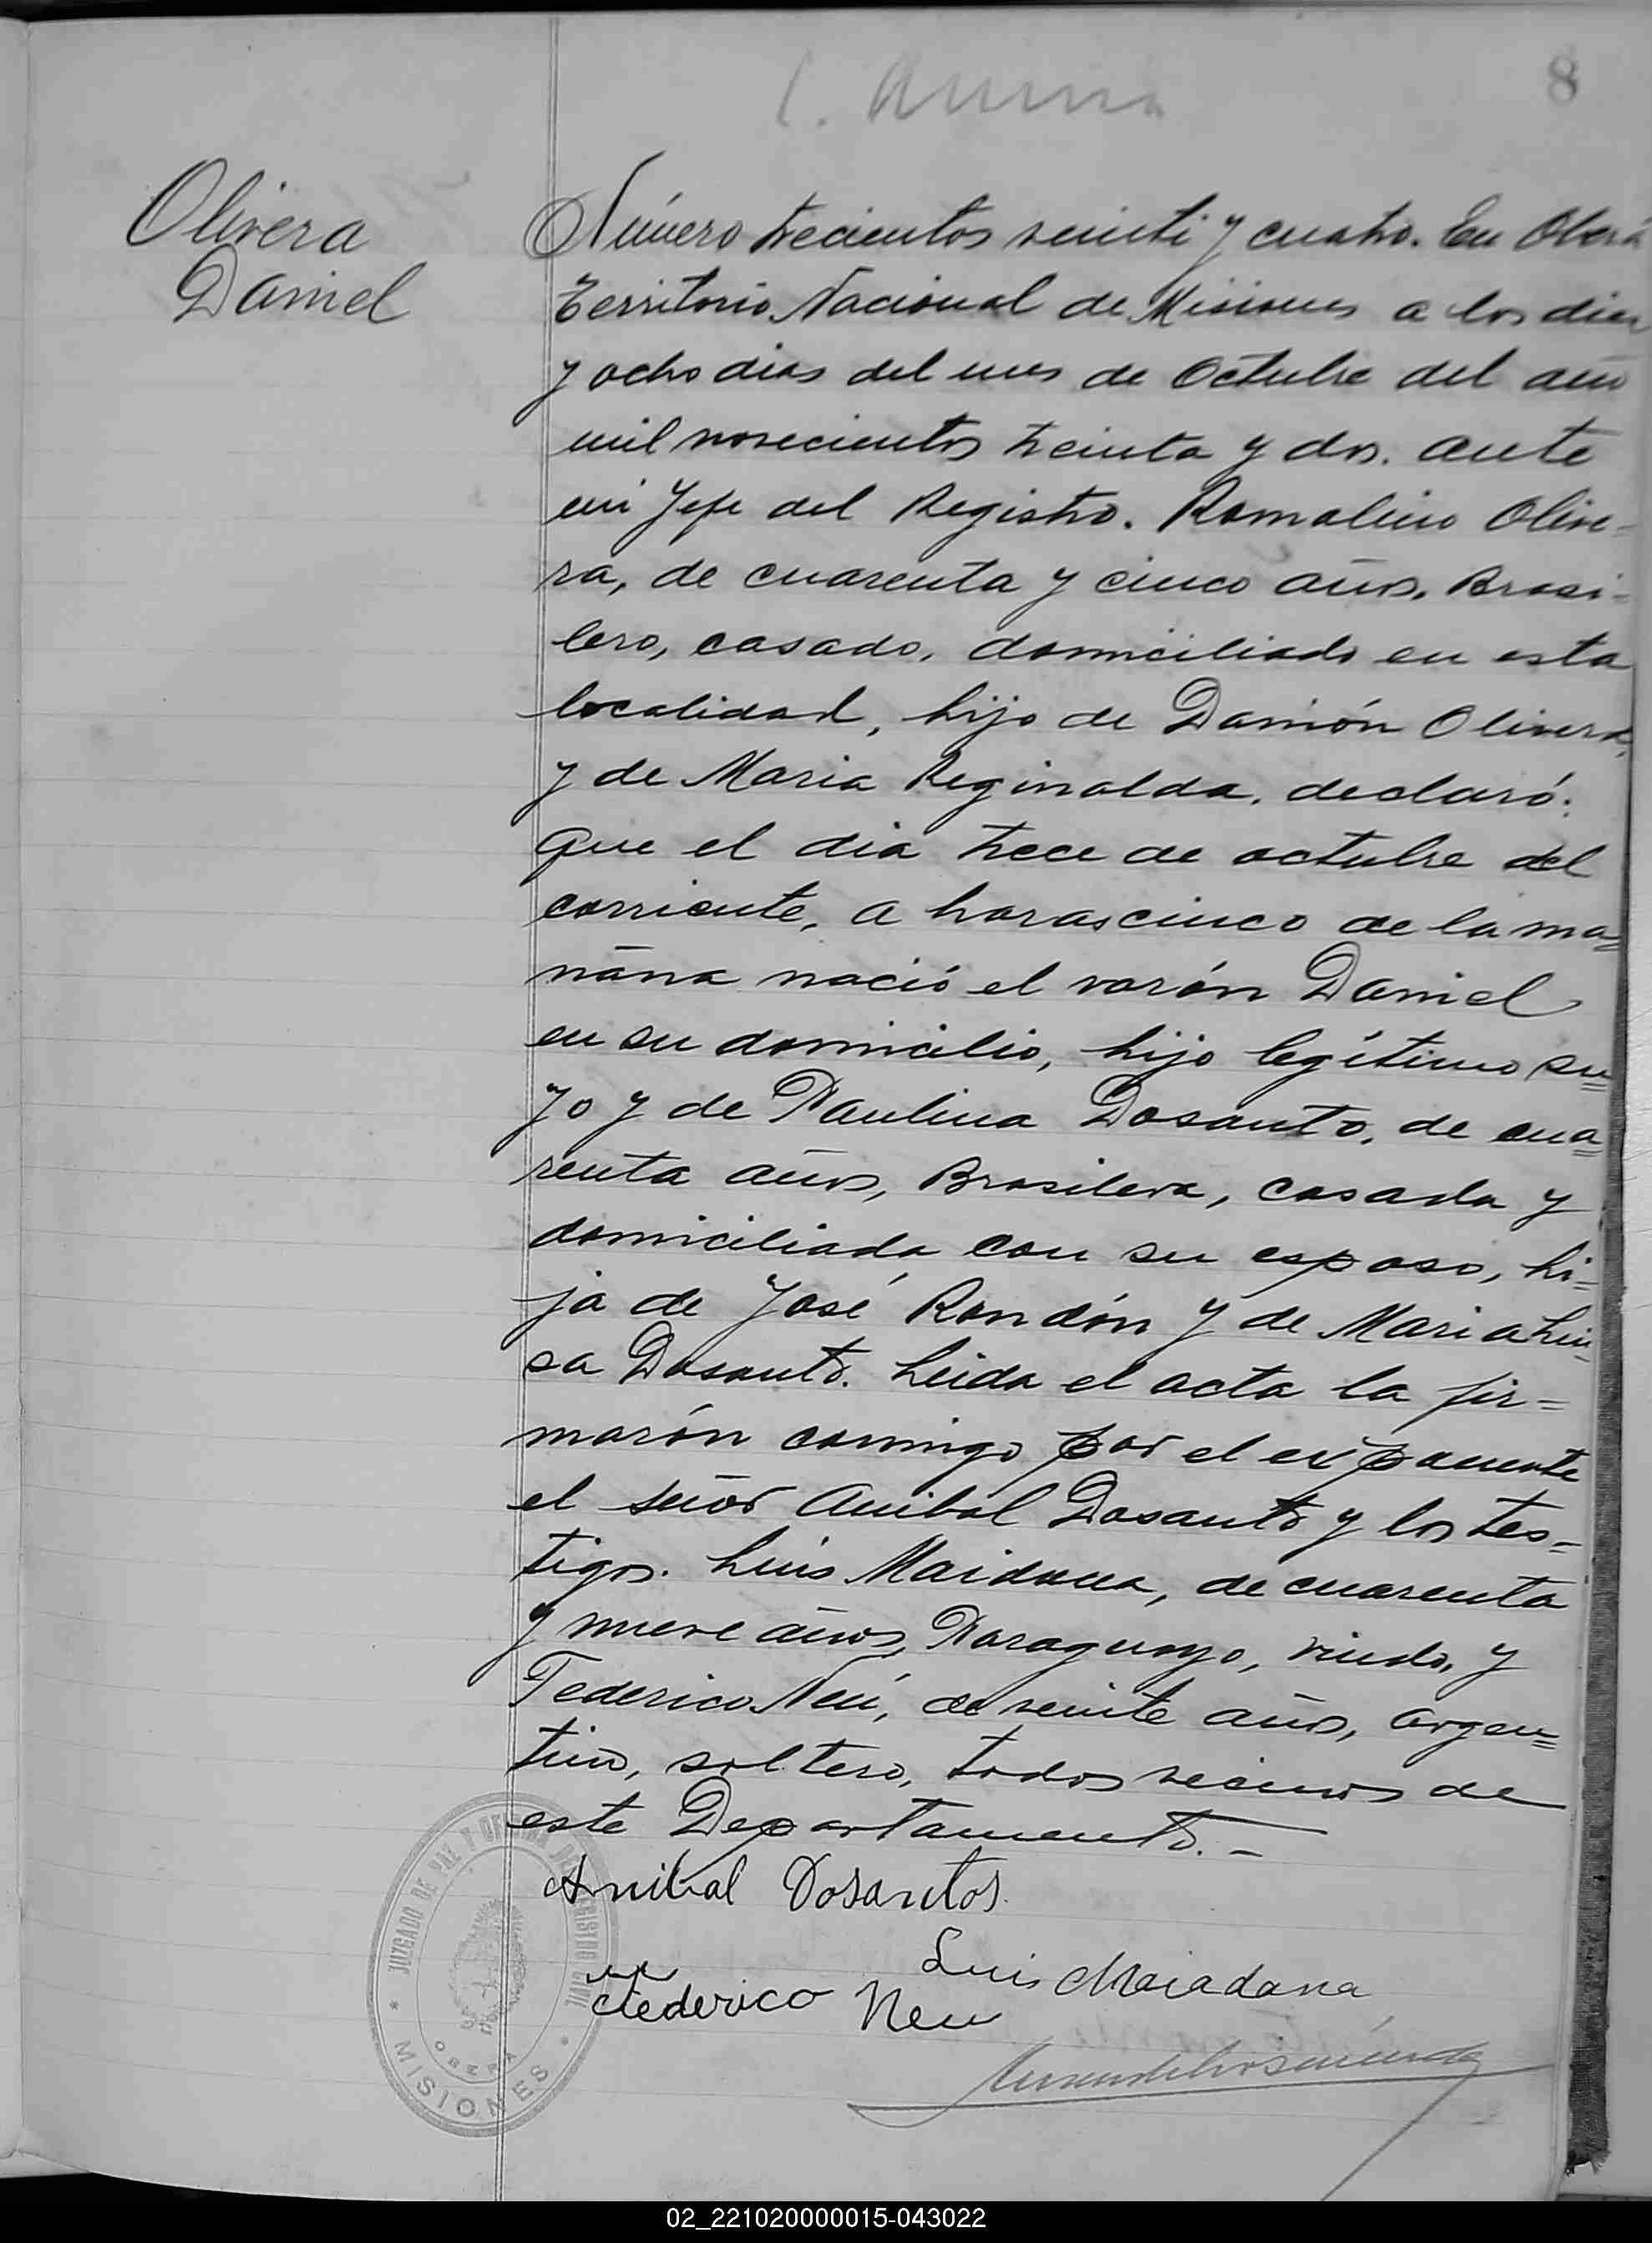 8
Olivera
Daniel
Número trecientos veinti y cuatro. En Oberá
Territorio Nacional de Misiones a los diez
y ocho dias del mes de Octubre del año
mil novecientos treinta y dos. ante
mi Jefe del Registro. Romalino Olive-
ra, de cuarenta y cinco años, Brasi-
lero, casado, domiciliado en esta
localidad, hijo de Damión Olivera,
y de Maria Reginalda. declaró:
que el dia trece de octubre del
corriente, a horas cinco de la ma=
ñana nació el varón Daniel
en su domicilio, hijo legítimo su=
yo y de Paulina Dosanto, de cua=
renta años, Brasilera, casada y
domiciliada con su esposo, hi=
ja de José Rondón y de Maria Lui-
sa Dosanto. Leida el acta la fir=
marón comigo por el exponente
el señor Anibal Dosanto y los tes=
tigos. Luis Maidana, de cuarenta
y nueve años, Paraguayo, viudo, y
Federico Neú, de veinte años, argen=
tino, soltero, todos vecinos de
este Departamento.-
Anibal Dosantos.
Luis Maiadana
Federico Neu
JUZGADO DE PAZ Y
REGISTRO CIVIL
OBERA
MISIONES
02_221020000015-043022